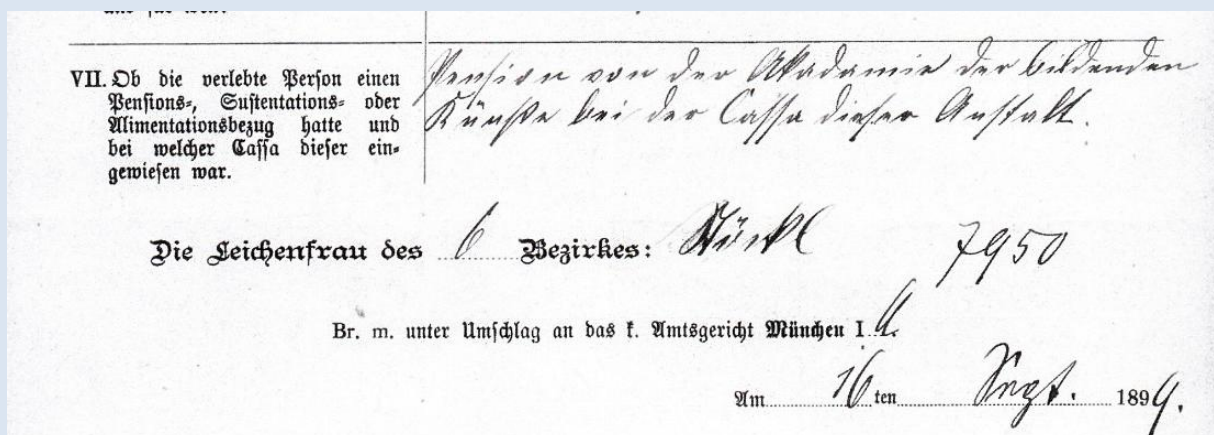 VII. Ob die verlebte Person einen
Pensions-, Sustentations- oder
Alimentationsbezug hatte und
bei welcher Cassa dieser ein-
gewiesen war.
Pension von der Akademie der bildenden
Künste bei der Cassa dieser Anstalt.
Die Leichenfrau des 6 Bezirkes: Stöckl 7950
Br. m. unter Umschlag an das k. Amtsgericht München I
Am 16 ten Sept. 1894.